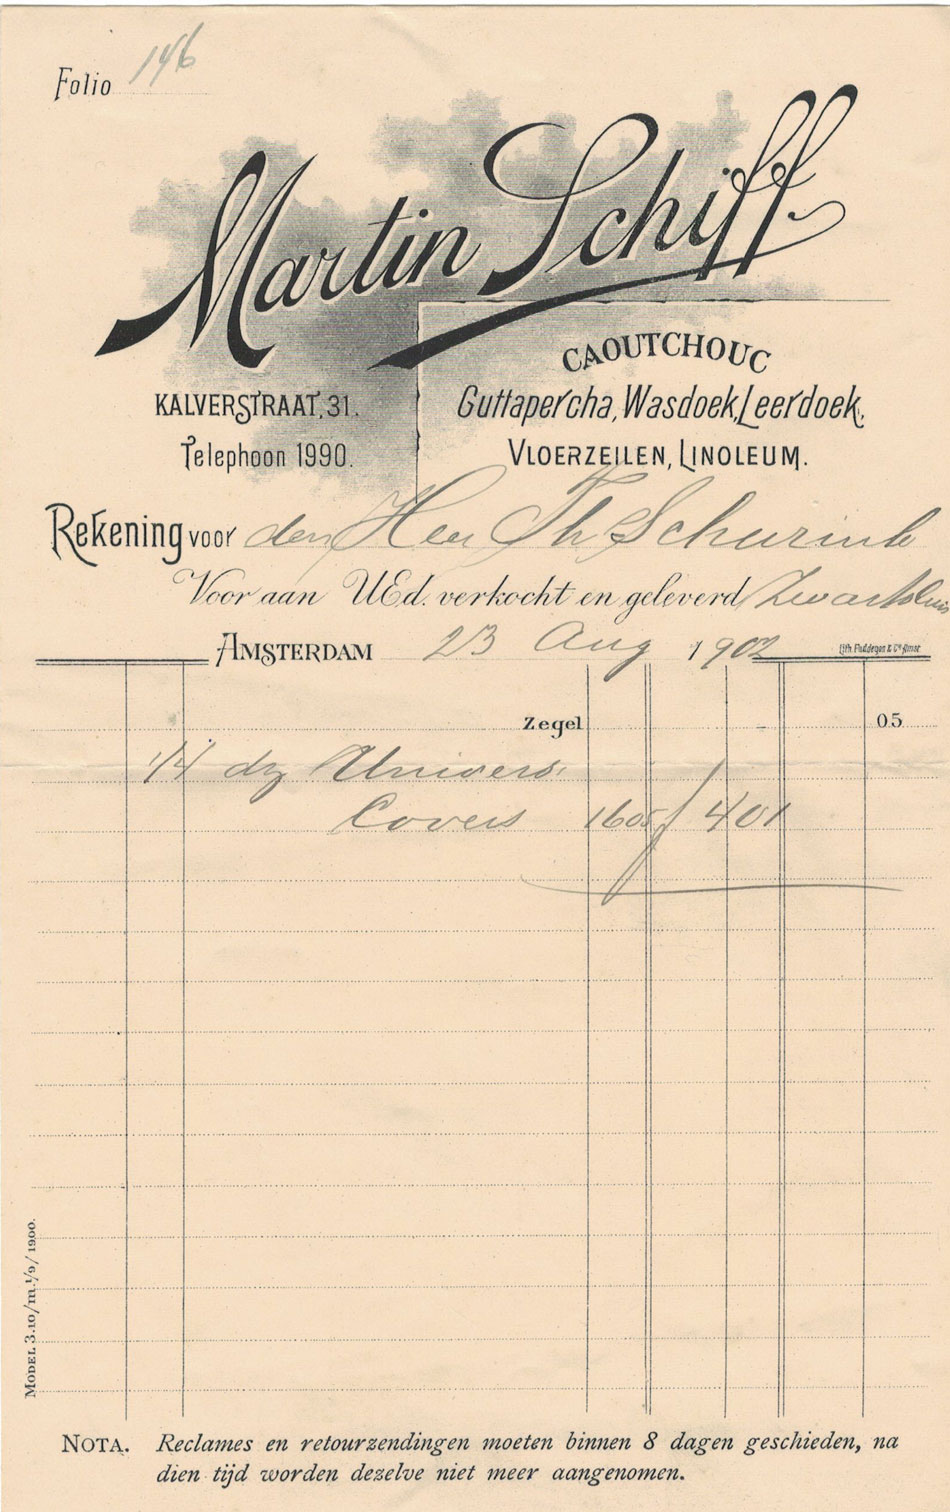 Folio 146
Martin Schiff.
KALVERSTRAAT, 31.
Telephoon 1990.
CAOUTCHOUC
Guttapercha, Wasdoek, Leerdoek,
VLOERZEILEN, LINOLEUM.
Rekening voor den Heer Th Schurink
Voor aan UEd. verkocht en geleverd Zwartsluis
AMSTERDAM 23 Aug 1902
Zegel 05
1/4 dz Univers.
Covers 1605 f 401
MODEL 3.10/m.1/9/1900.
NOTA. Reclames en retourzendingen moeten binnen 8 dagen geschieden, na
dien tijd worden dezelve niet meer aangenomen.